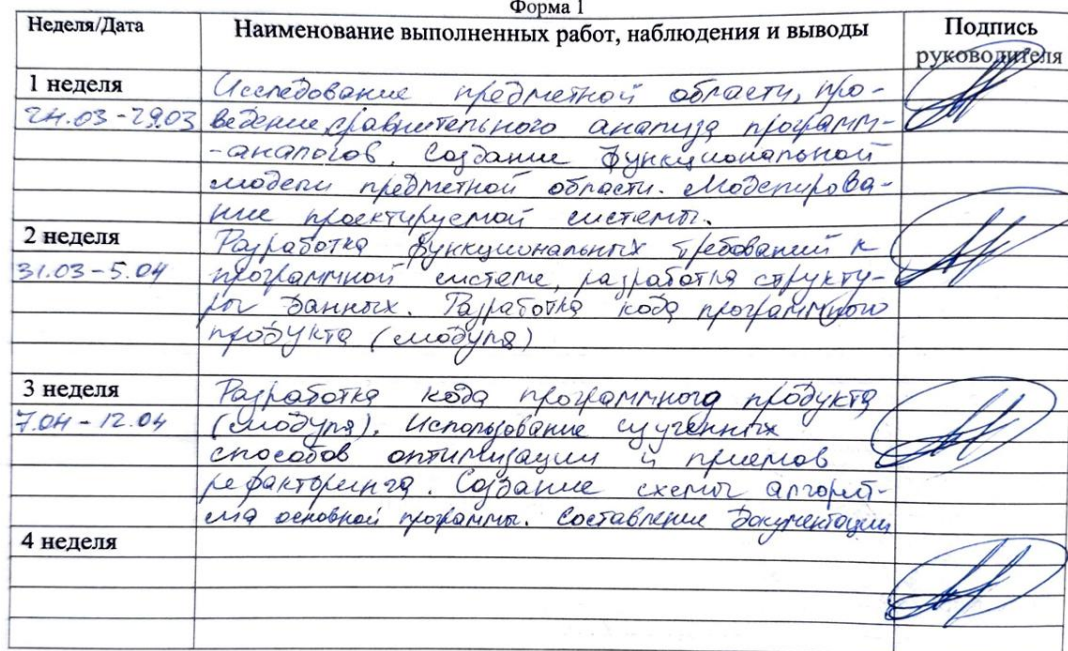 Форма 1
Неделя/Дата Наименование выполненных работ, наблюдения и выводы Подпись руководителя
1 неделя Исследование предметной области, про-
24.03-29.03 ведение сравнительного анализа программ-
-аналогов. Создание функциональной
модели предметной области. Моделирова-
ние проектируемой системы.
2 неделя Разработка функциональных требований к
31.03-5.04 программной системе, разработка структу-
ры данных. Разработка кода программного
продукта (модуля)
3 неделя Разработка кода программного продукта
7.04-12.04 (модуля). Использование изученных
способов оптимизации и приемов
рефакторинга. Создание схемы алгорит-
ма основной программы. Составление документации
4 неделя